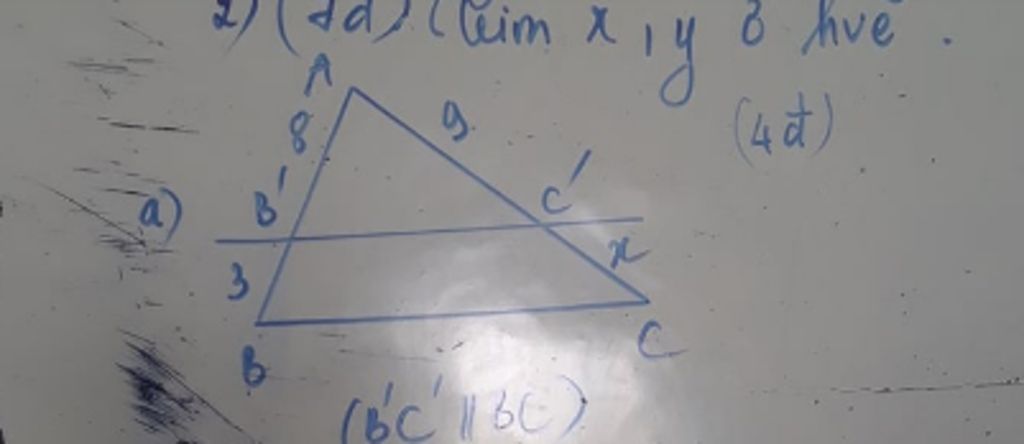 2) (4đ) Tìm x, y ở hvẽ.
(4đ)
A
8
9
a)
B'
C'
3
x
B
C
(B'C' // BC)